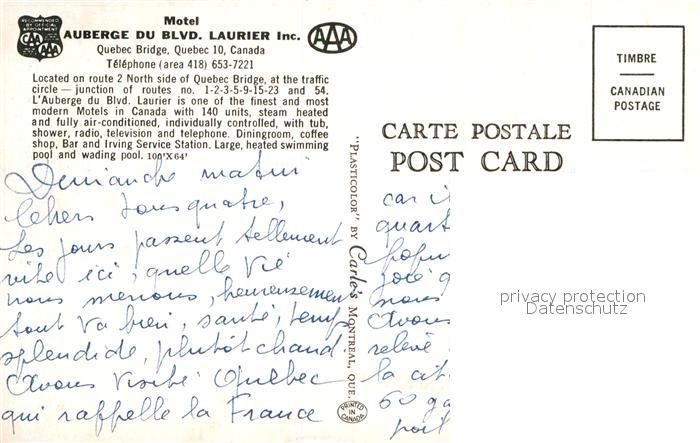 RECOMMENDED
BY OFFICIAL
APPOINTMENT
CAA
AAA
Motel
AUBERGE DU BLVD. LAURIER Inc.
AAA
Quebec Bridge, Quebec 10, Canada
Téléphone (area 418) 653-7221
Located on route 2 North side of Quebec Bridge, at the traffic
circle — junction of routes no. 1-2-3-5-9-15-23 and 54.
L'Auberge du Blvd. Laurier is one of the finest and most
modern Motels in Canada with 140 units, steam heated
and fully air-conditioned, individually controlled, with tub,
shower, radio, television and telephone. Diningroom, coffee
shop, Bar and Irving Service Station. Large, heated swimming
pool and wading pool. 100'X64'
Dimanche matin
Chers tous quatre,
Les jours passent tellement
vite ici, quelle vie
nous menons, heureusement
tout va bien, santé, temps
splendide, plutôt chaud
Avons visité Québec
qui rappelle la France
"PLASTICOLOR" BY Carle's MONTREAL, QUE.
PRINTED IN CANADA
CARTE POSTALE
POST CARD
TIMBRE
CANADIAN
POSTAGE
car i
quart
popu
nous
Avons
relevé
la cit
60 ga
privacy protection
Datenschutz